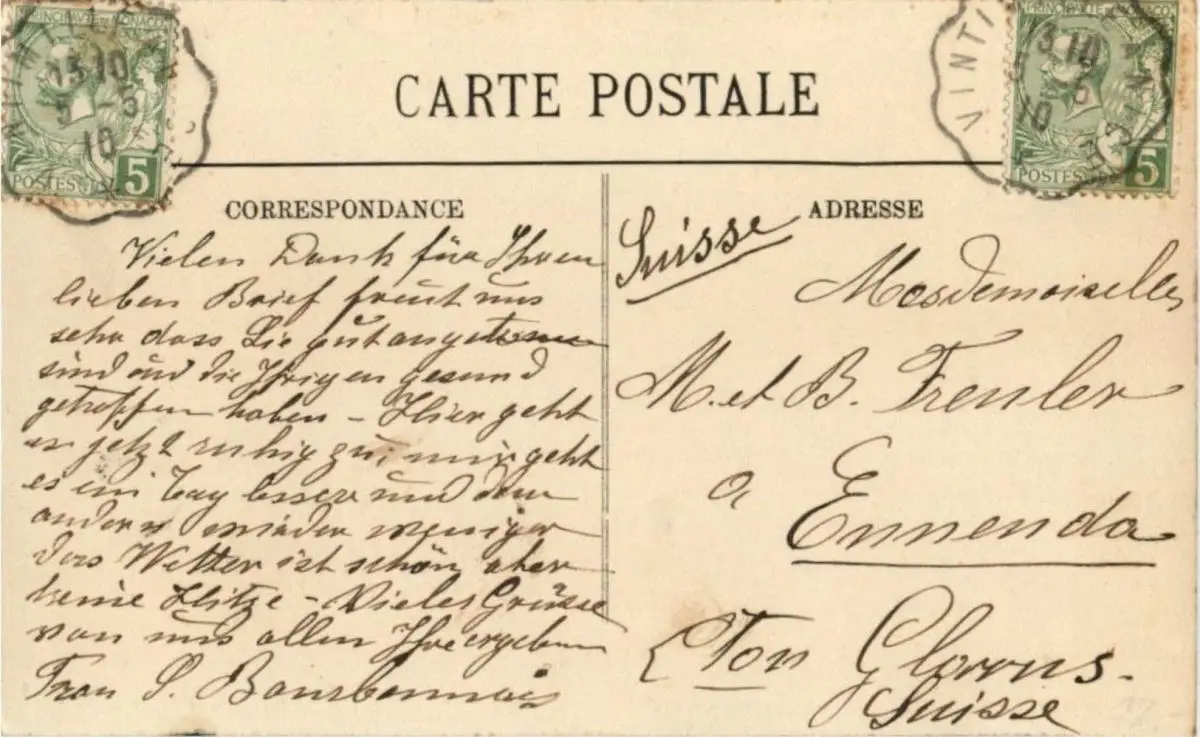 PRINCIPAUTÉ DE MONACO
13 10
5 -5
10
POSTES 5
CARTE POSTALE
PRINCIPAUTÉ DE MONACO
VINTI
13 10
5
10
POSTES 5
CORRESPONDANCE
Vielen Dank für Ihren
lieben Brief freut uns
sehr dass Sie gut
sind und die Ihrigen gesund
getroffen haben – Hier geht
es jetzt ruhig zu, mir geht
es ein Tag besser und den
andern wieder weniger
das Wetter ist schön aber
keine Hitze – Viele Grüsse
von uns allen Ihre ergeben
Frau S. Bourbonnais
ADRESSE
Suisse
Mesdemoiselles
M. et B. Freuler
a Ennenda
Cton Glarus.
Suisse